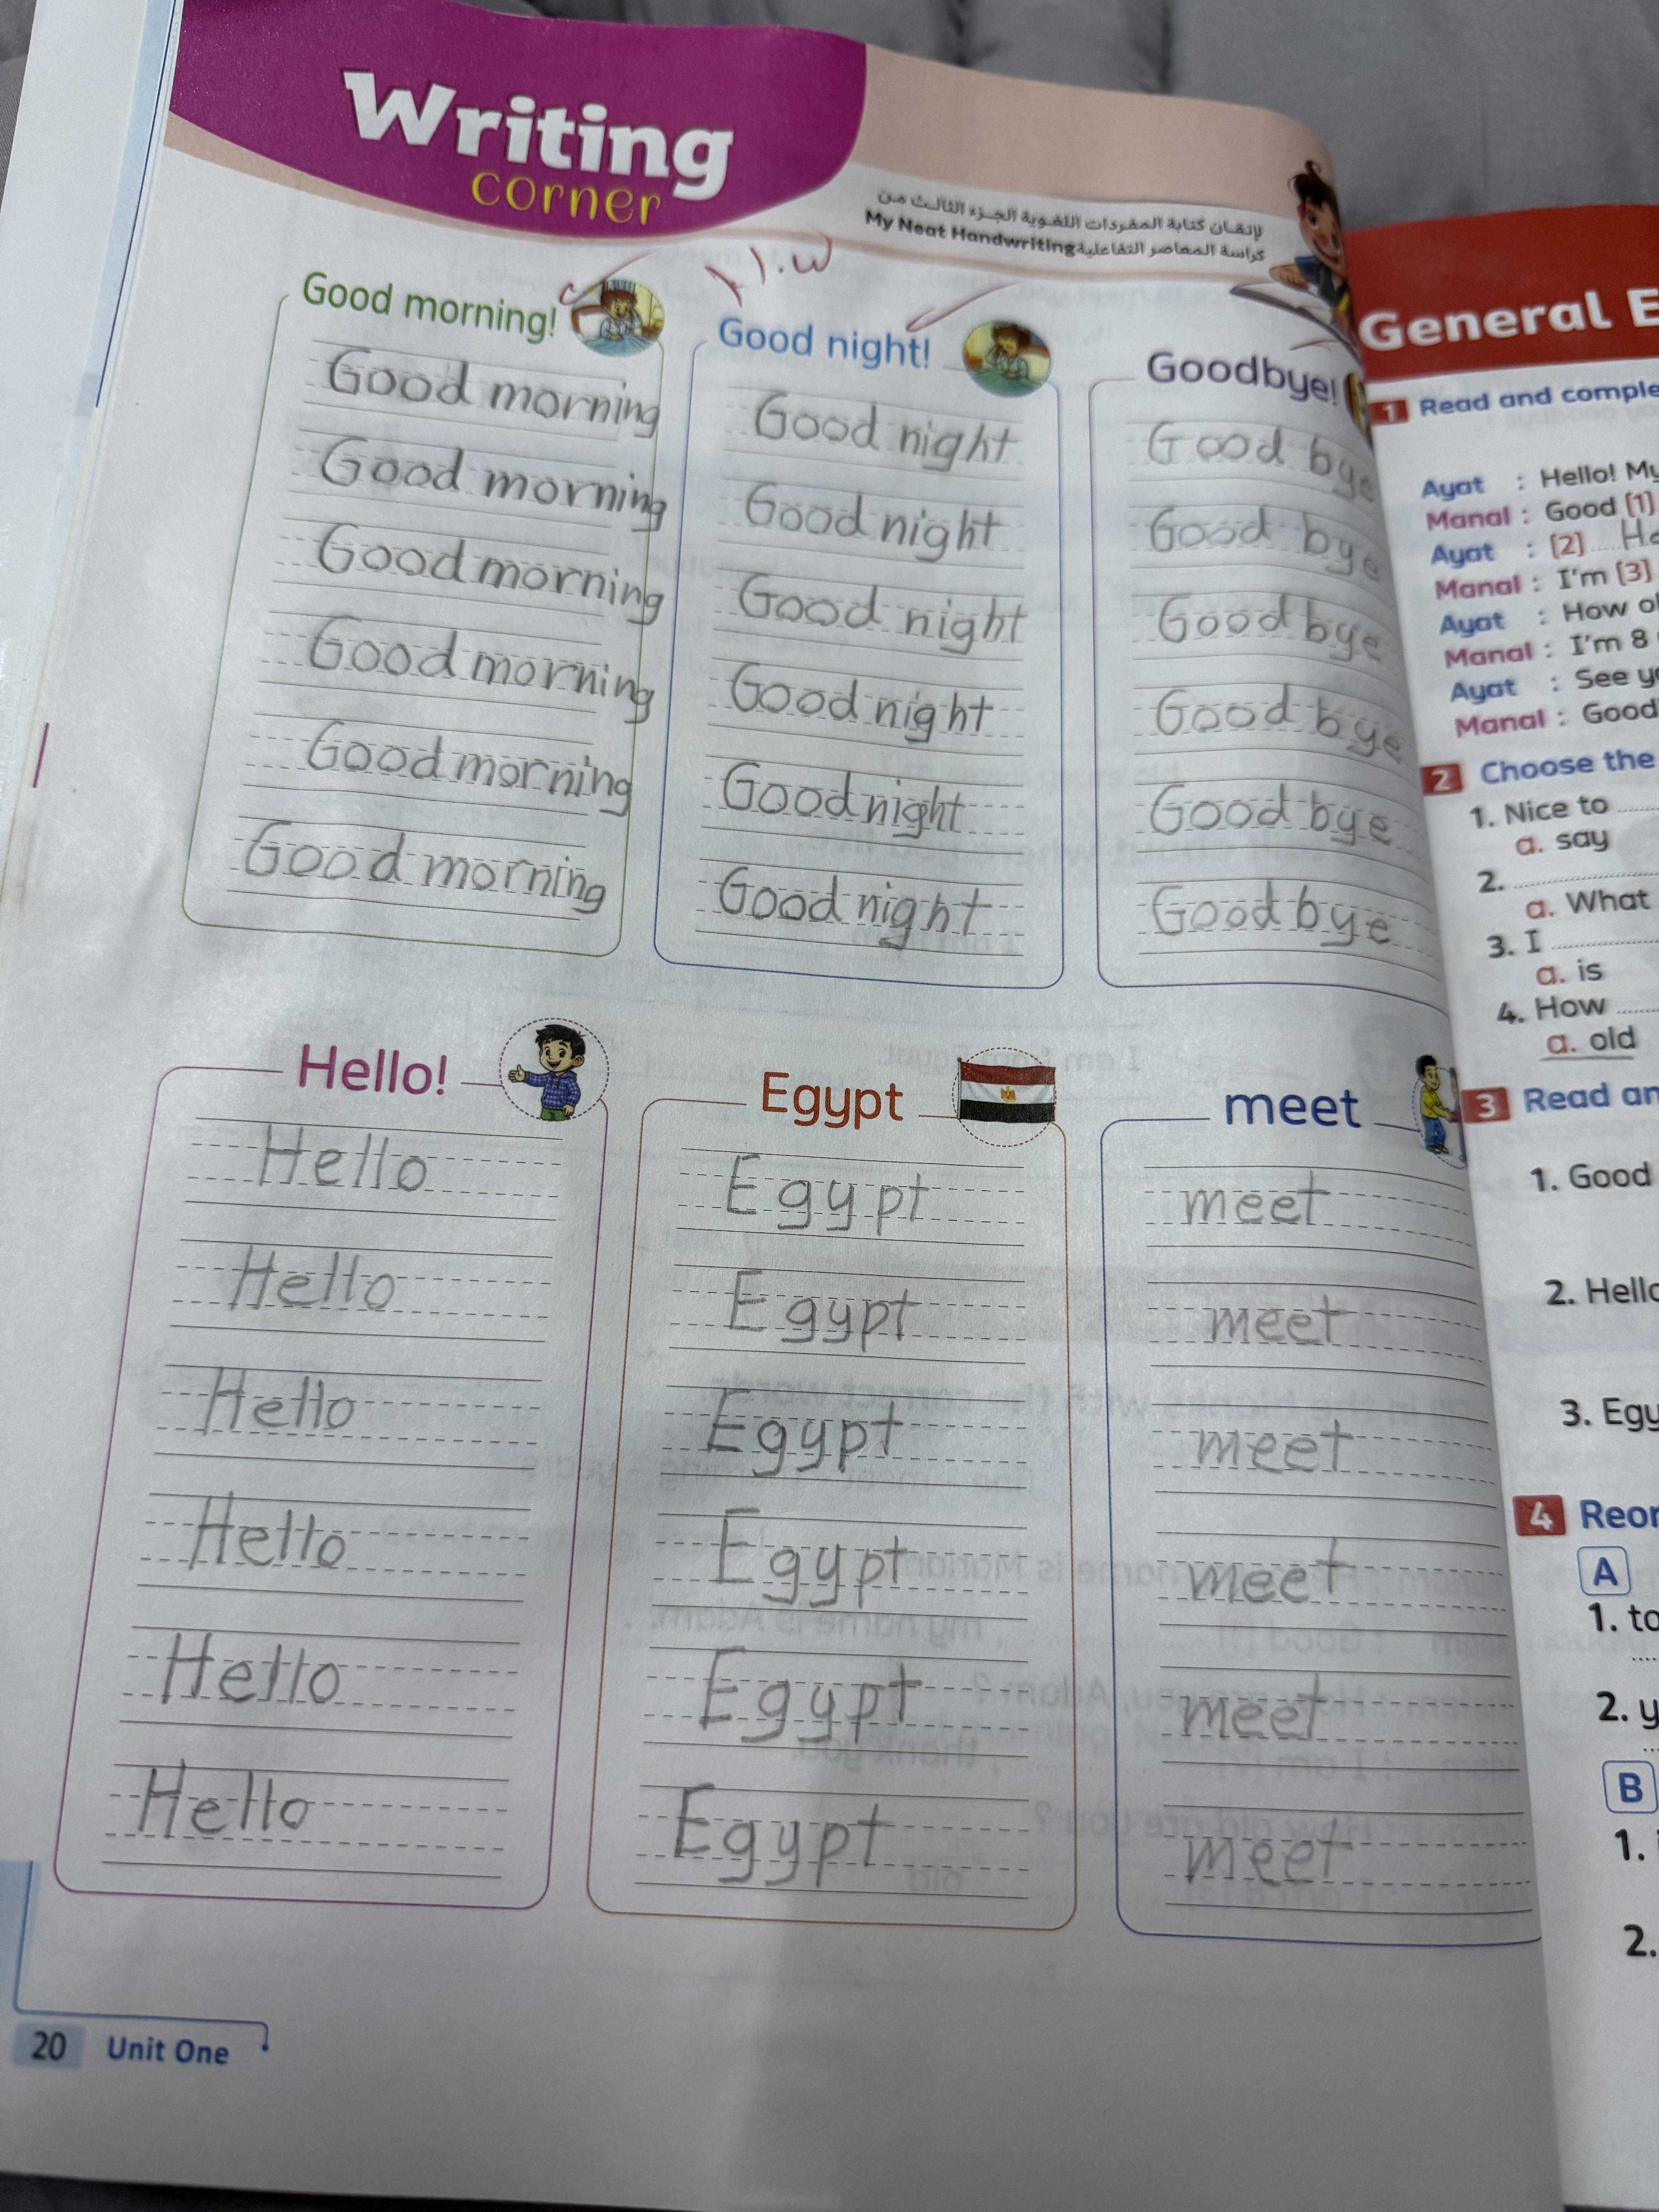 Writing
corner
لإتقـان كتابة المفردات اللغـوية الجـزء الثالـث مـن
كراسة المعاصر التفاعلية My Neat Handwriting
H.W
Good morning!
Good morning
Good morning
Good morning
Good morning
Good morning
Good morning
Good night!
Good night
Good night
Good night
Good night
Good night
Good night
Goodbye!
Good bye
Good bye
Good bye
Good bye
Good bye
Good bye
Hello!
Hello
Hello
Hello
Hello
Hello
Hello
Egypt
Egypt
Egypt
Egypt
Egypt
Egypt
Egypt
meet
meet
meet
meet
meet
meet
meet
20 Unit One
General E
1 Read and comple
Ayat : Hello! My
Manal : Good [1]
Ayat : [2]
Manal : I'm [3]
Ayat : How ol
Manal : I'm 8
Ayat : See yo
Manal : Good
2 Choose the
1. Nice to
a. say
2.
a. What
3. I
a. is
4. How
a. old
3 Read an
1. Good
2. Hello
3. Egy
4 Reor
A
1. to
2. y
B
1.
2.